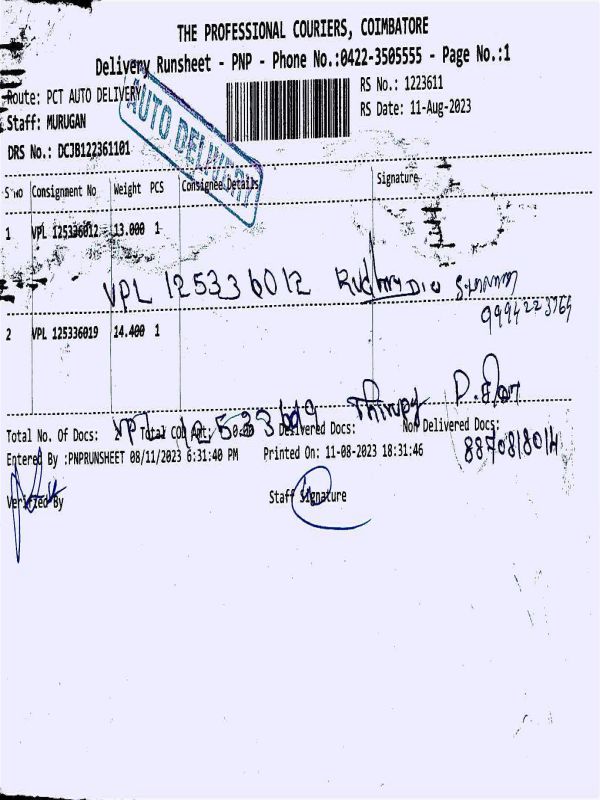 THE PROFESSIONAL COURIERS, COIMBATORE
Delivery Runsheet - PNP - Phone No.:0422-3505555 - Page No.:1
Route: PCT AUTO DELIVERY
RS No.: 1223611
Staff: MURUGAN
RS Date: 11-Aug-2023
AUTO DELIVERY
DRS No.: DCJB122361101
S'NO Consignment No Weight PCS Consignee Details Signature
1 VPL 125336012 13.000 1
VPL 125336012
2 VPL 125336019 14.400 1
VPL 125336019 Thirupy
Total No. Of Docs: 2 Total COD Amt: 0.00 Delivered Docs: Non Delivered Docs:
Entered By :PNPRUNSHEET 08/11/2023 6:31:40 PM Printed On: 11-08-2023 18:31:46
Verified By Staff Signature